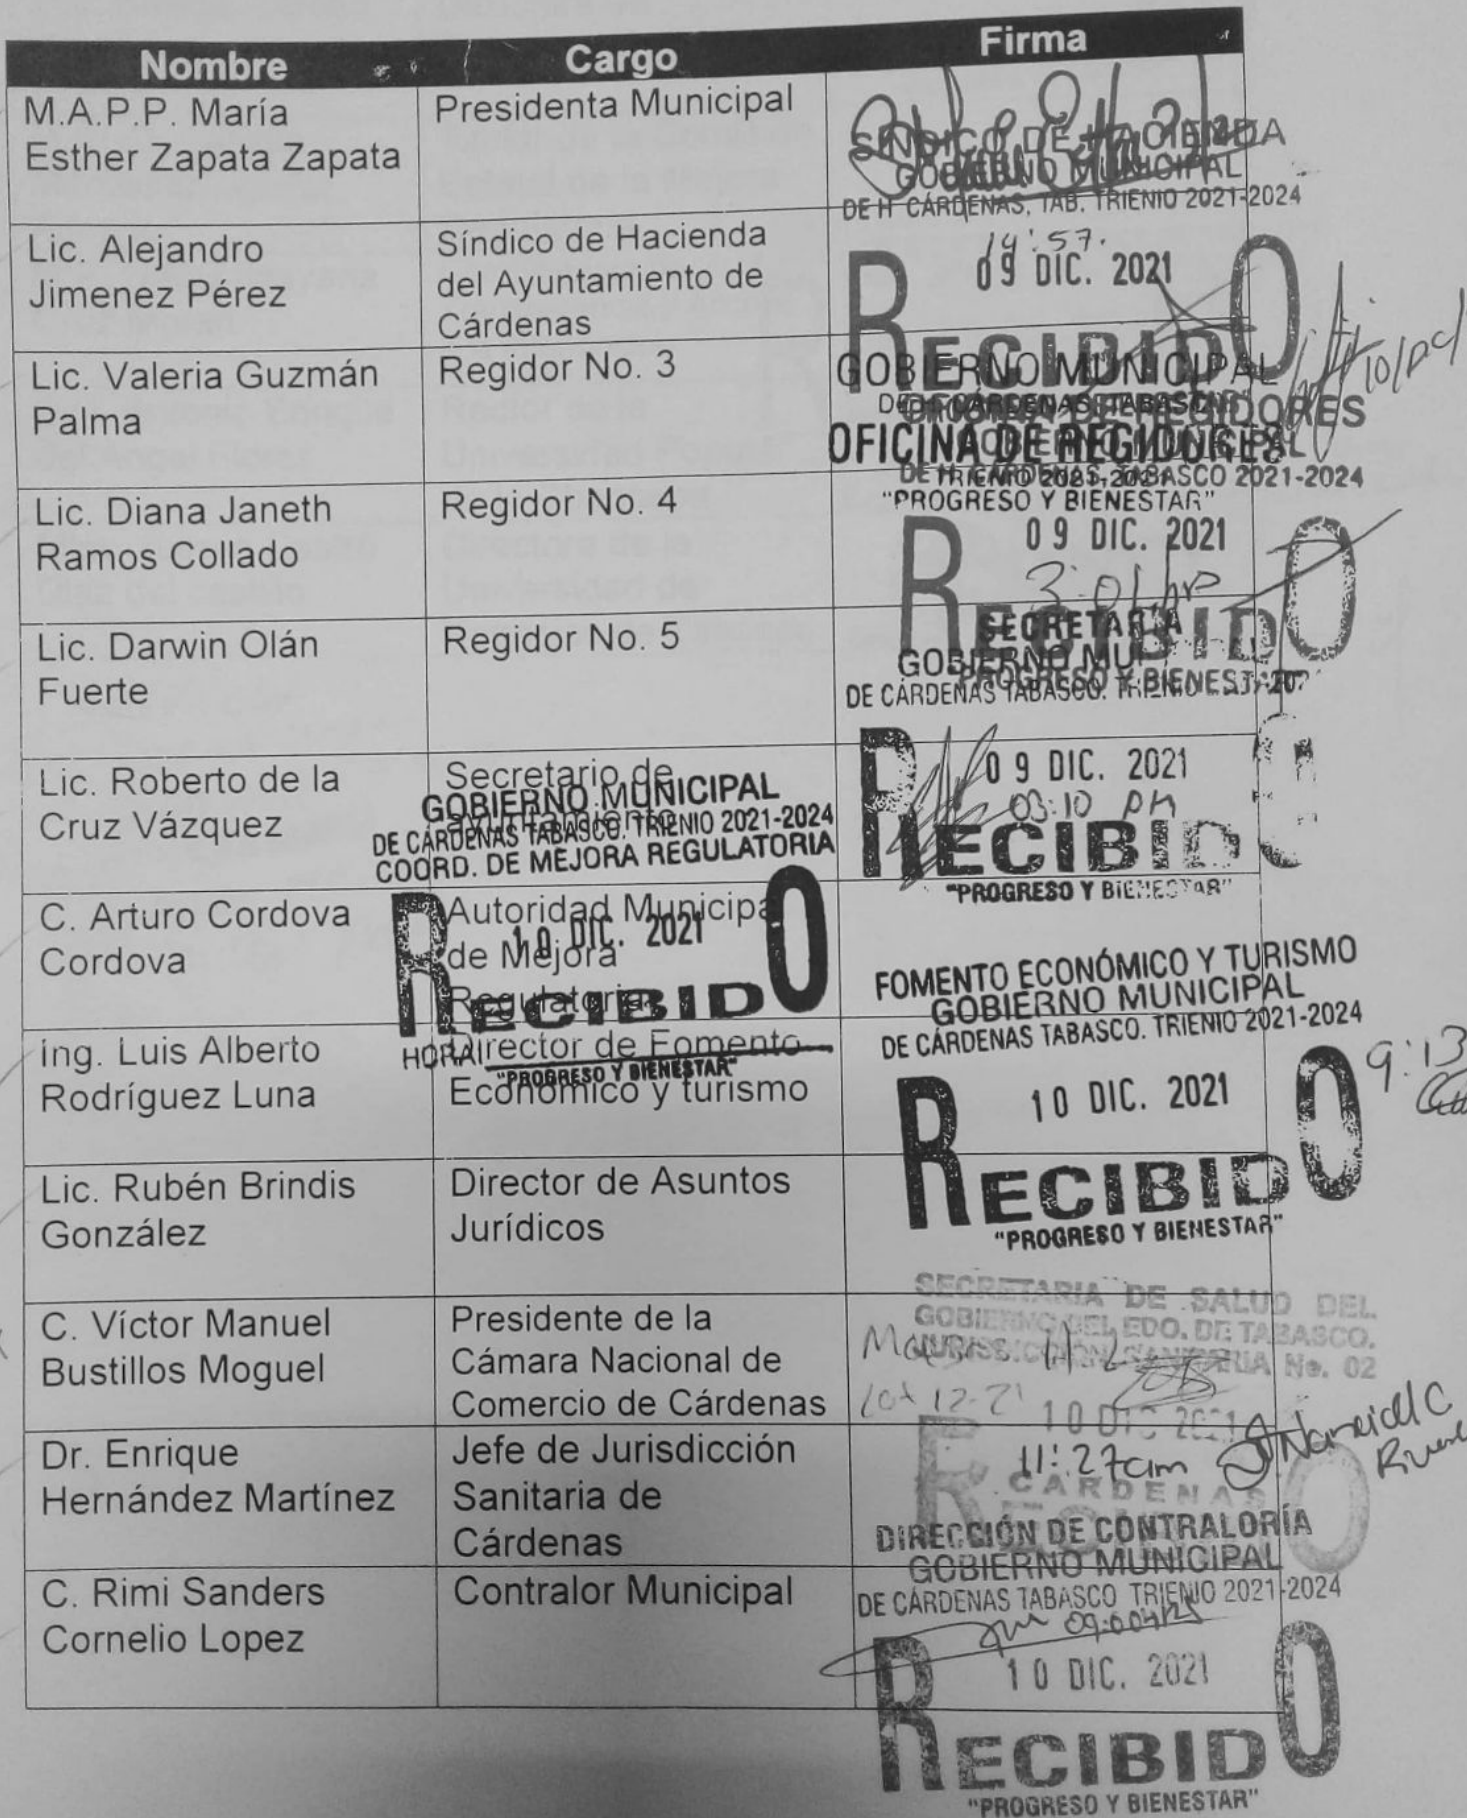 Nombre Cargo Firma
M.A.P.P. María
Esther Zapata Zapata
Presidenta Municipal
SÍNDICO DE HACIENDA
GOBIERNO MUNICIPAL
DE H CÁRDENAS, TAB. TRIENIO 2021-2024
Lic. Alejandro
Jimenez Pérez
Síndico de Hacienda
del Ayuntamiento de
Cárdenas
14:57.
09 DIC. 2021
RECIBIDO
Lic. Valeria Guzmán
Palma
Regidor No. 3
GOBIERNO MUNICIPAL
OFICINA DE REGIDORES
DE H. CÁRDENAS, TABASCO 2021-2024
"PROGRESO Y BIENESTAR"
Lic. Diana Janeth
Ramos Collado
Regidor No. 4
09 DIC. 2021
3:01 hrs
RECIBIDO
Lic. Darwin Olán
Fuerte
Regidor No. 5
SECRETARIA
GOBIERNO MU
PROGRESO Y BIENESTA
DE CÁRDENAS TABASCO. TRIENIO
Lic. Roberto de la
Cruz Vázquez
Secretario de
ayuntamiento
GOBIERNO MUNICIPAL
DE CÁRDENAS TABASCO. TRIENIO 2021-2024
COORD. DE MEJORA REGULATORIA
09 DIC. 2021
03:10 PM
RECIBIDO
"PROGRESO Y BIENESTAR"
C. Arturo Cordova
Cordova
Autoridad Municipal
de Mejora
Regulatoria
10 DIC. 2021
RECIBIDO
HORA
"PROGRESO Y BIENESTAR"
FOMENTO ECONÓMICO Y TURISMO
GOBIERNO MUNICIPAL
DE CÁRDENAS TABASCO. TRIENIO 2021-2024
Ing. Luis Alberto
Rodríguez Luna
Director de Fomento
Económico y turismo
9:13
10 DIC. 2021
RECIBIDO
"PROGRESO Y BIENESTAR"
Lic. Rubén Brindis
González
Director de Asuntos
Jurídicos
C. Víctor Manuel
Bustillos Moguel
Presidente de la
Cámara Nacional de
Comercio de Cárdenas
SECRETARIA DE SALUD DEL
GOBIERNO DEL EDO. DE TABASCO.
JURISDICCIÓN SANITARIA No. 02
10 DIC 2021
Dr. Enrique
Hernández Martínez
Jefe de Jurisdicción
Sanitaria de
Cárdenas
11:27am
CARDENAS
RECIBIDO
C. Rimi Sanders
Cornelio Lopez
Contralor Municipal
DIRECCIÓN DE CONTRALORÍA
GOBIERNO MUNICIPAL
DE CÁRDENAS TABASCO TRIENIO 2021-2024
10 DIC. 2021
RECIBIDO
"PROGRESO Y BIENESTAR"